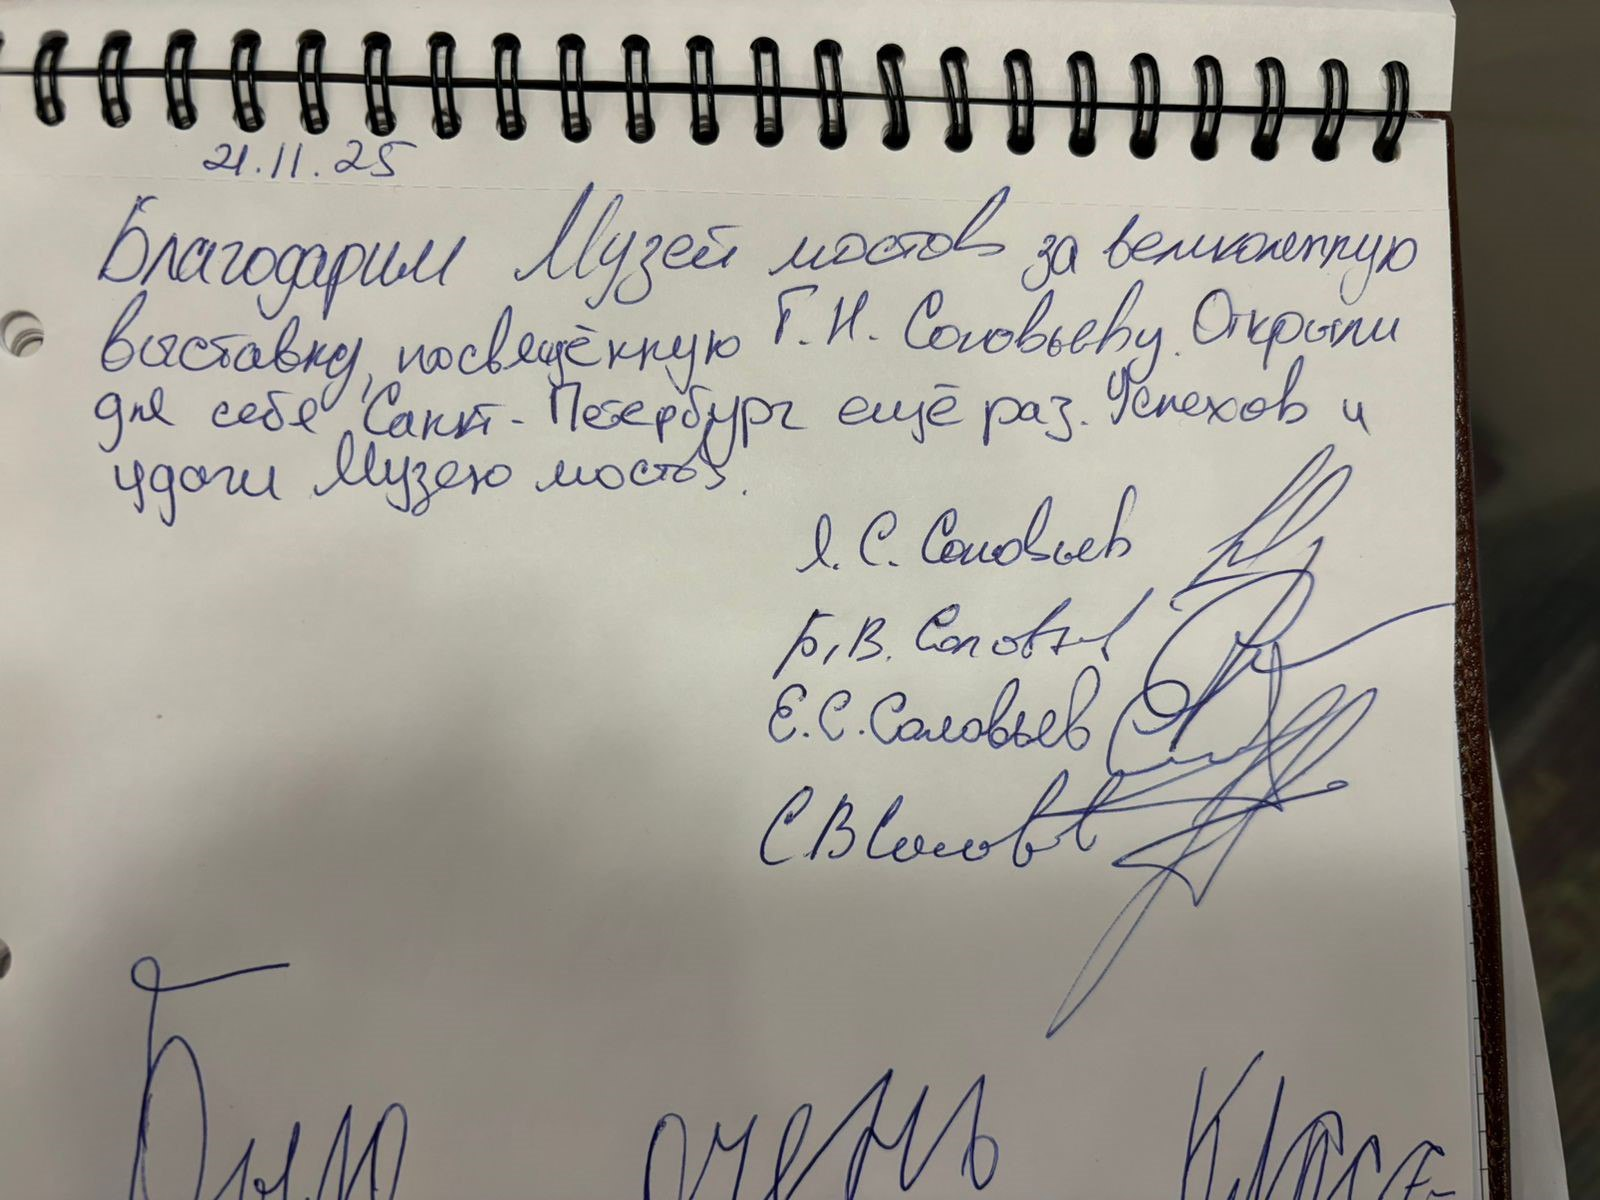 21.11.25
Благодарим Музей мостов за великолепную
выставку, посвящённую Г.Н. Соловьеву. Открыли
для себя Санкт-Петербург ещё раз. Успехов и
удачи Музею мостов.
Я.С. Соловьев
Б.В. Соловьев
Е.С. Соловьев
С В Соловьев
Было очень